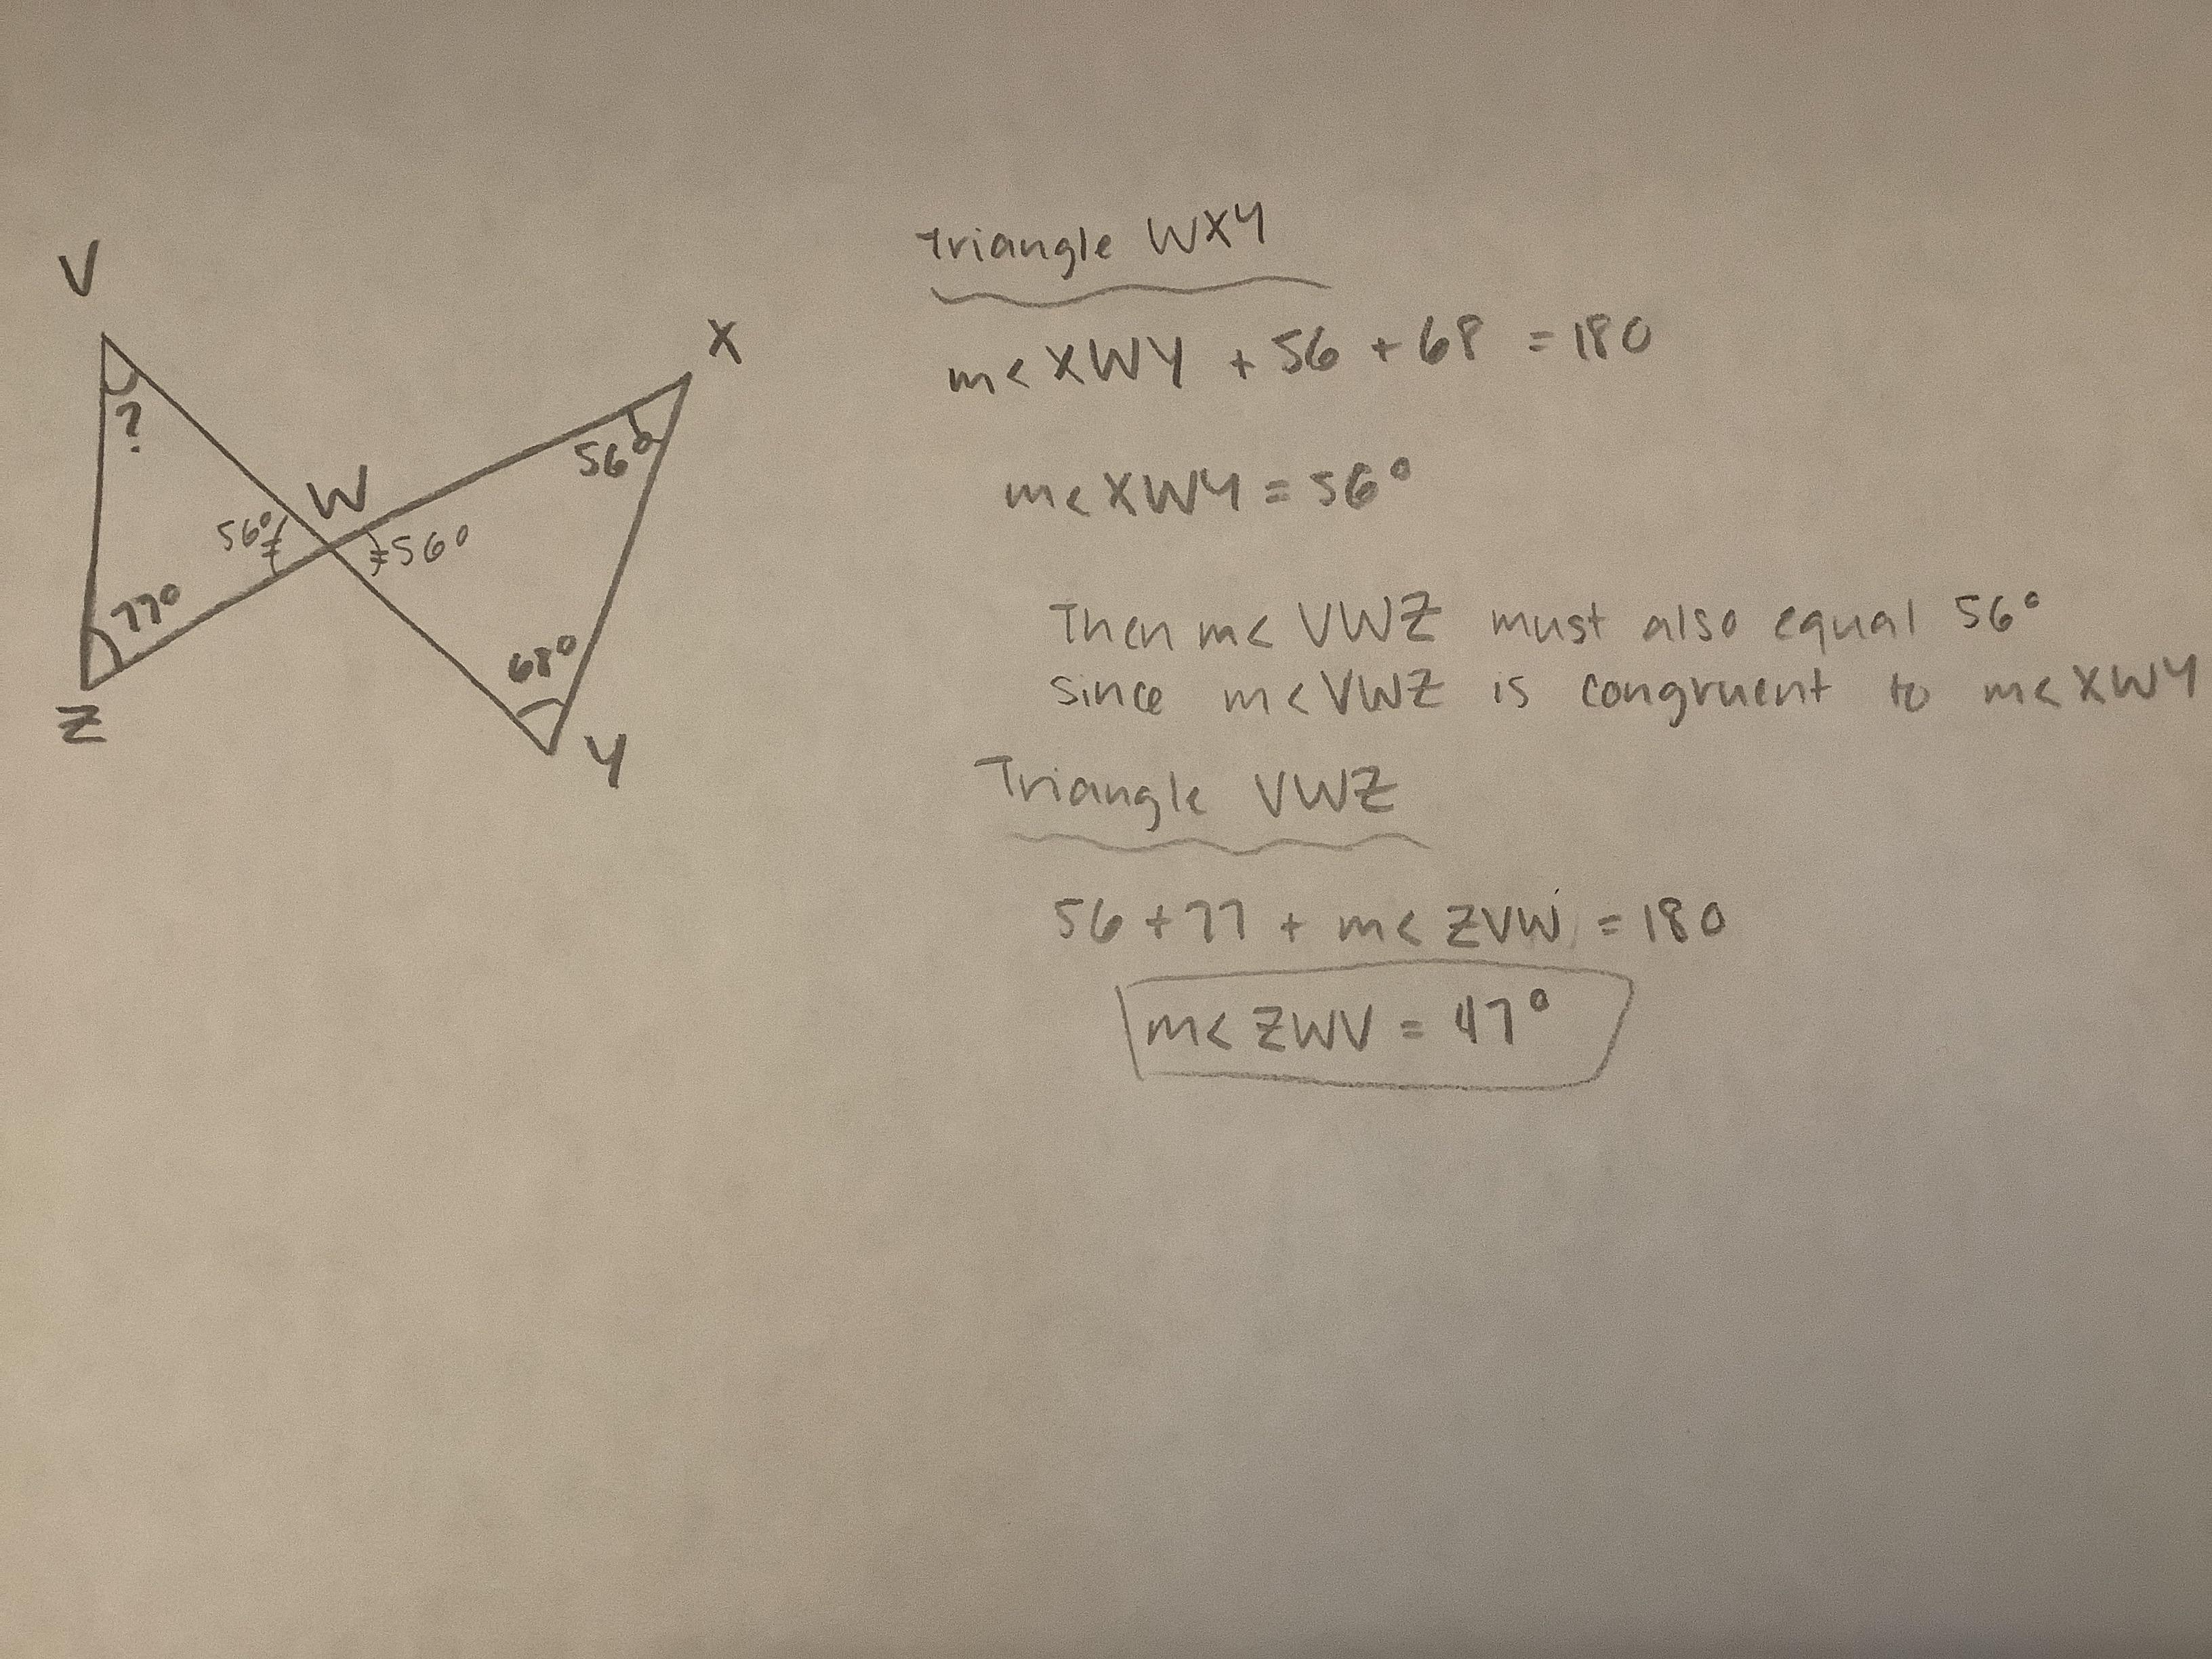 V
X
?
W
56°
56°
56°
77°
68°
Z
Y
Triangle WXY
m< XWY + 56 + 68 = 180
m< XWY = 56°
Then m< VWZ must also equal 56°
since m< VWZ is congruent to m< XWY
Triangle VWZ
56 + 77 + m< ZVW = 180
m< ZWV = 47°